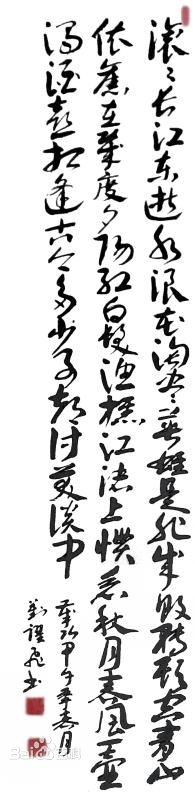 滚滚长江东逝水浪花淘尽英雄是非成败转头空青山
依旧在几度夕阳红白发渔樵江渚上惯看秋月春风一壶
浊酒喜相逢古今多少事都付笑谈中
岁次甲午年春月
书
Bai 百科